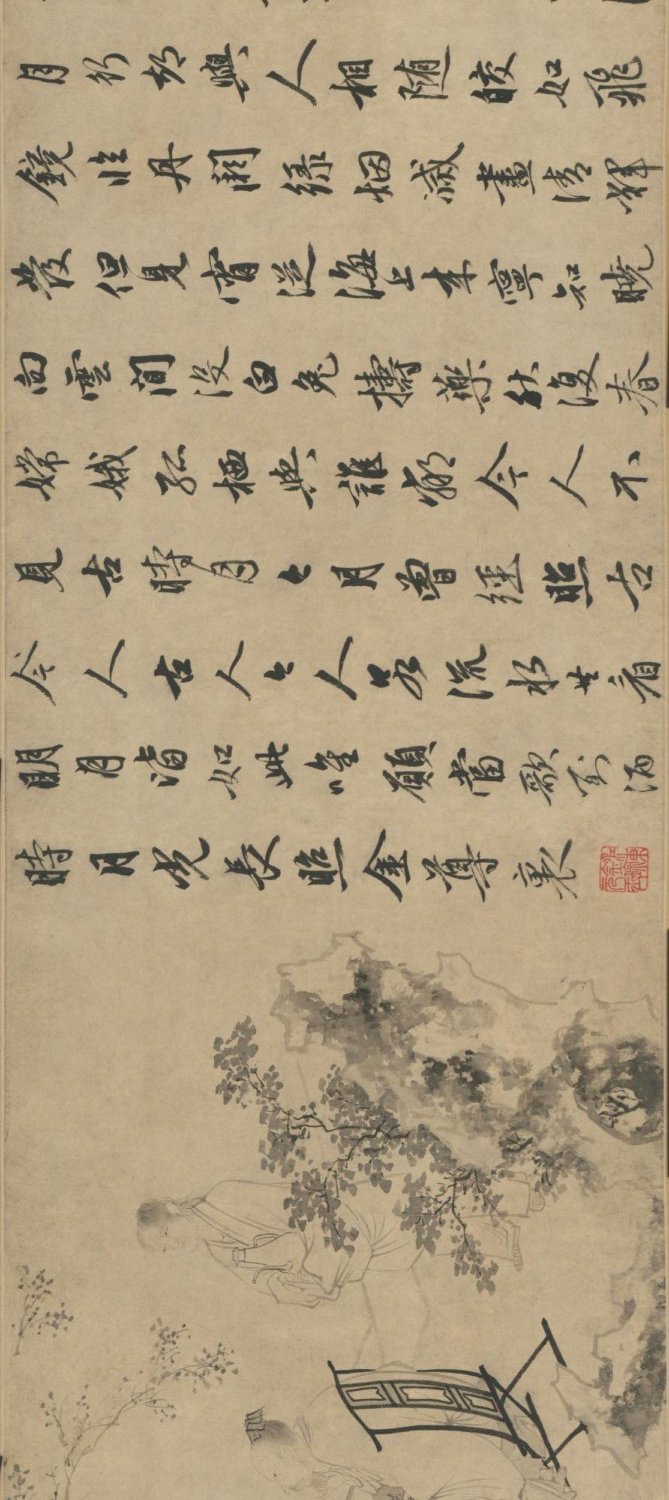 月行却與人相随皎如飛
鏡臨丹闕緑烟滅盡清輝
發但見宵從海上来寧知曉
向雲間没白兔擣藥秋復春
嫦娥孤栖與誰鄰今人不
見古時月今月曾經照古
今人古人今人若流水共看
明月皆如此唯願當歌對酒
時月光長照金尊裏